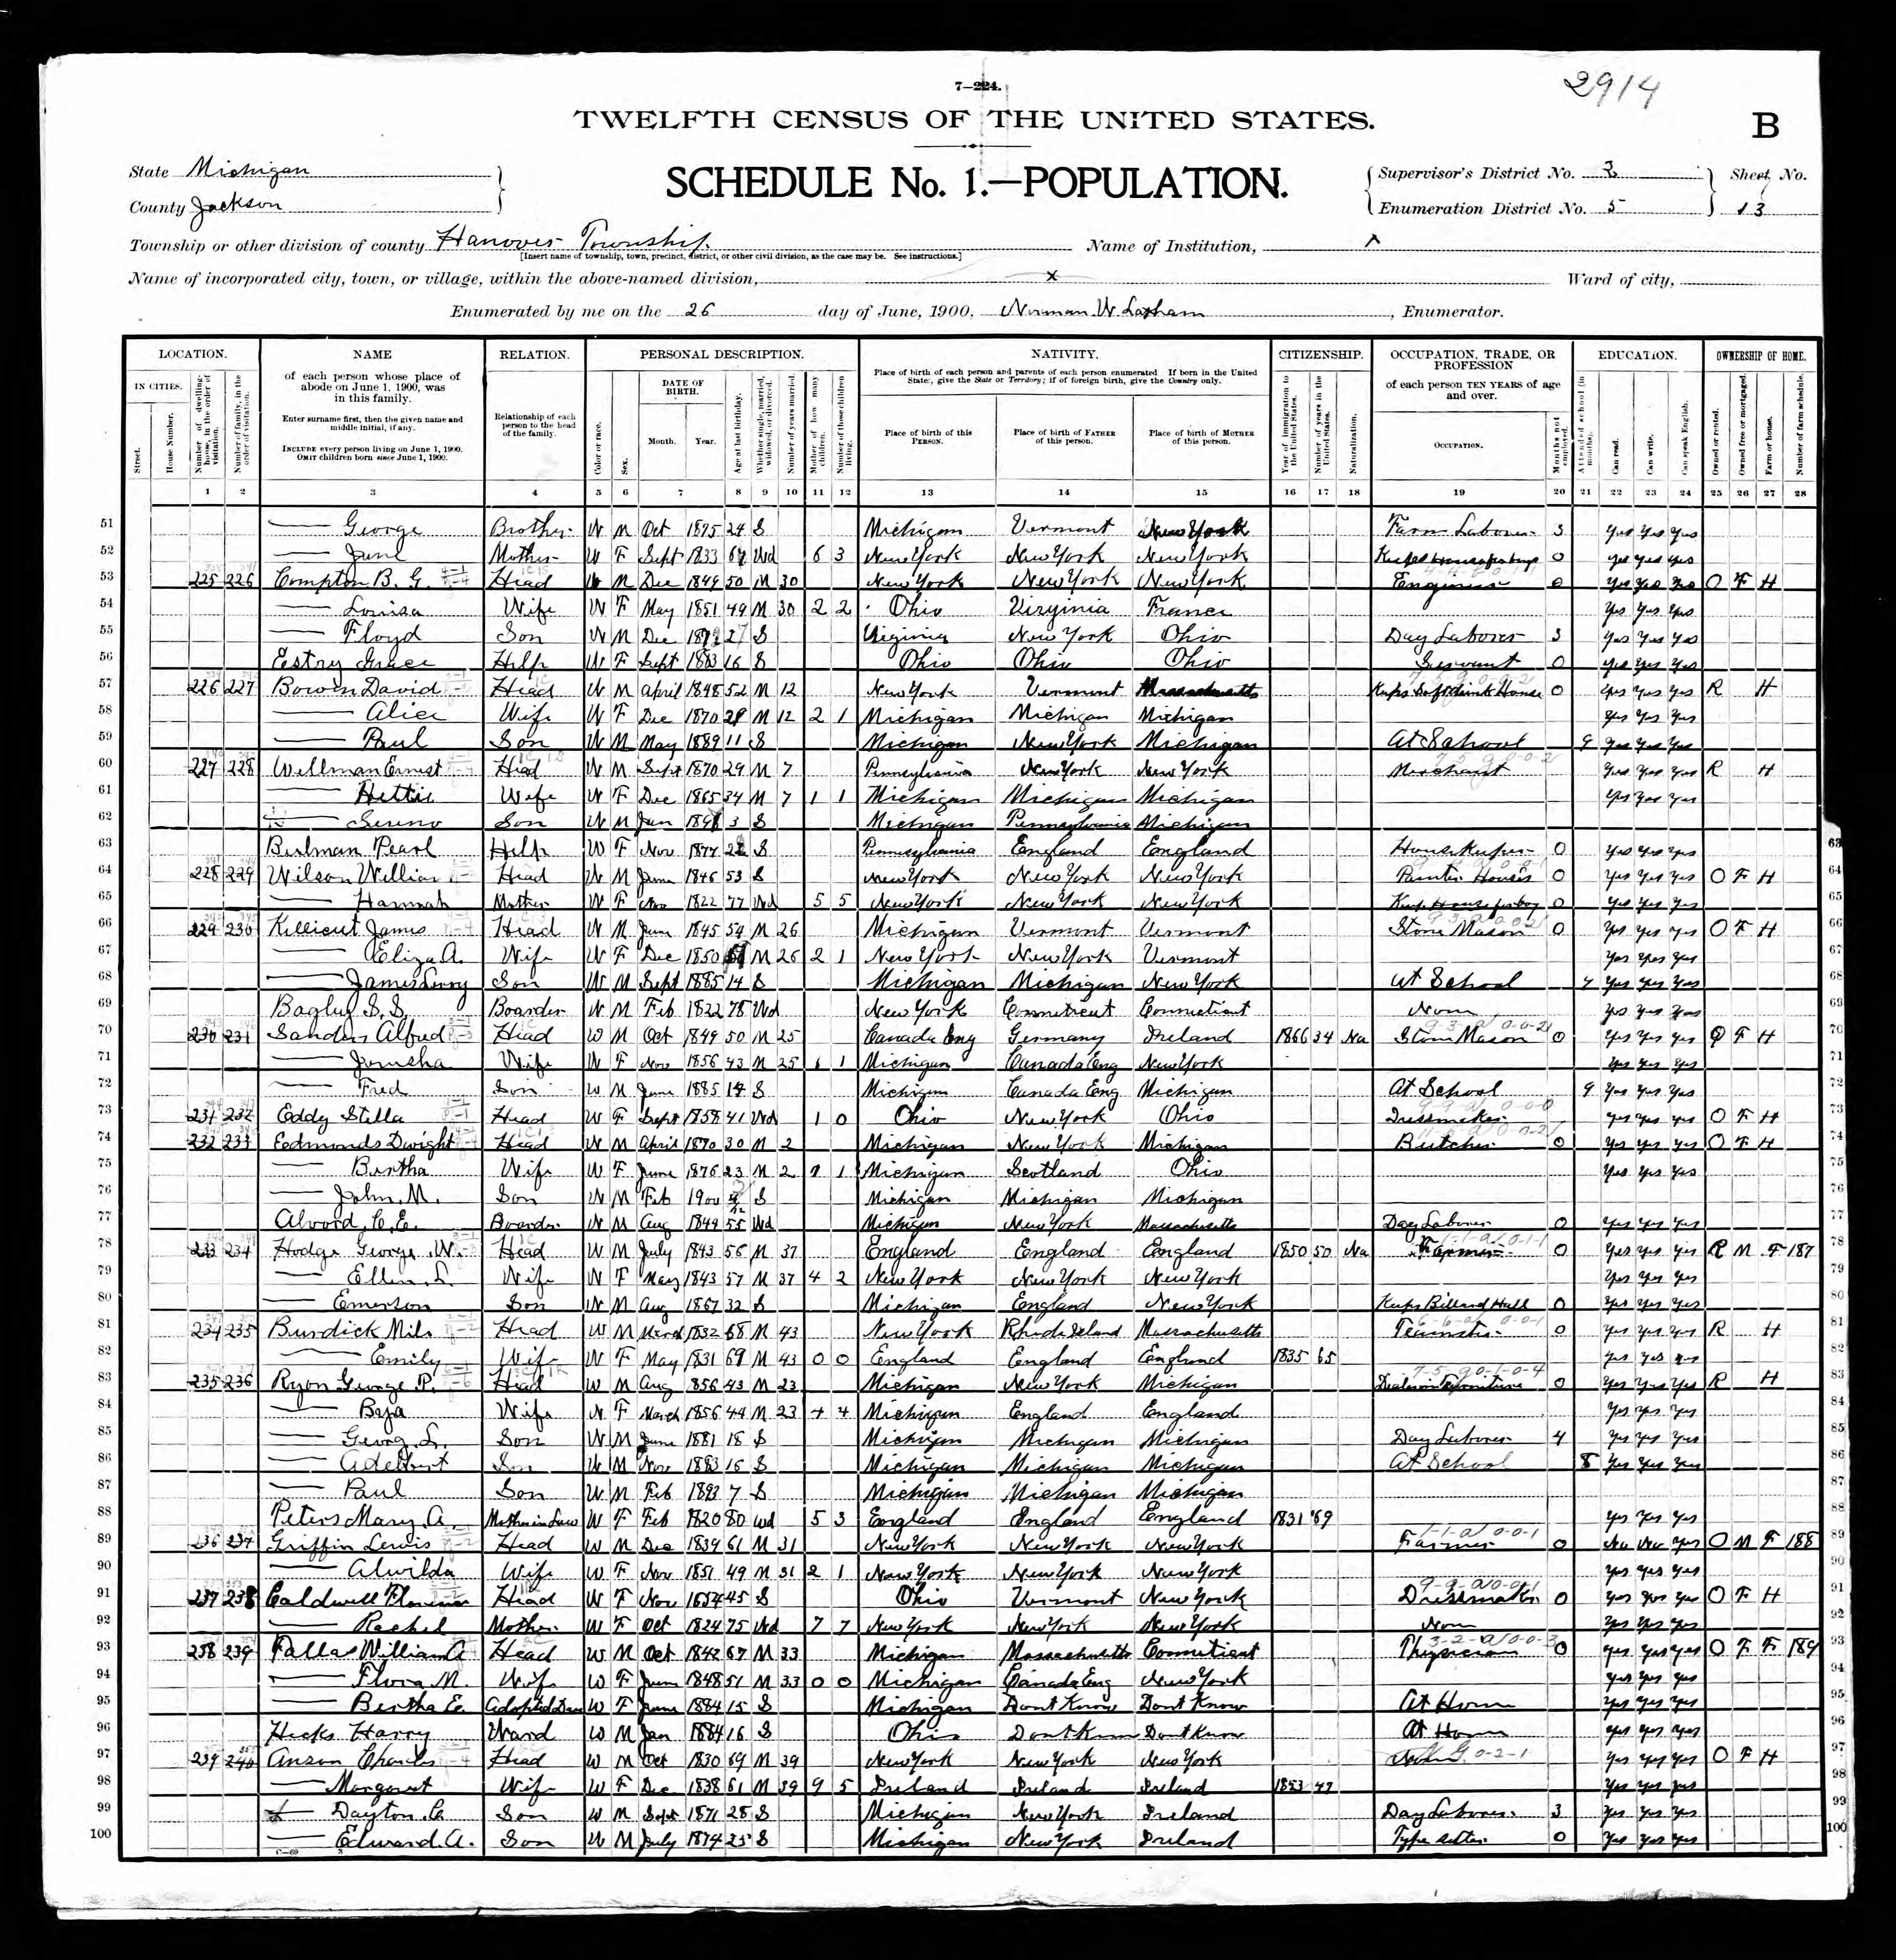 7—224.
2914
TWELFTH CENSUS OF THE UNITED STATES.
B
State Michigan
County Jackson
SCHEDULE No. 1.—POPULATION.
Supervisor's District No. 3
Enumeration District No. 5
Sheet No.
13
Township or other division of county Hanover Township
[Insert name of township, town, precinct, district, or other civil division, as the case may be. See instructions.]
Name of Institution, x
Name of incorporated city, town, or village, within the above-named division, x
Ward of city,
Enumerated by me on the 26 day of June, 1900, Norman W. Latham, Enumerator.
LOCATION. NAME RELATION. PERSONAL DESCRIPTION. NATIVITY. CITIZENSHIP. OCCUPATION, TRADE, OR PROFESSION EDUCATION. OWNERSHIP OF HOME.
IN CITIES.
Street.
House Number.
Number of dwelling-house, in the order of visitation.
Number of family, in the order of visitation.
of each person whose place of abode on June 1, 1900, was in this family.
Enter surname first, then the given name and middle initial, if any.
INCLUDE every person living on June 1, 1900.
OMIT children born since June 1, 1900.
Relationship of each person to the head of the family.
Color or race.
Sex.
DATE OF BIRTH.
Month. Year.
Age at last birthday.
Whether single, married, widowed, or divorced.
Number of years married.
Mother of how many children.
Number of these children living.
Place of birth of each person and parents of each person enumerated. If born in the United States, give the State or Territory; if of foreign birth, give the Country only.
Place of birth of this PERSON.
Place of birth of FATHER of this person.
Place of birth of MOTHER of this person.
Year of immigration to the United States.
Number of years in the United States.
Naturalization.
of each person TEN YEARS of age and over.
OCCUPATION.
Months not employed.
Attended school (in months).
Can read.
Can write.
Can speak English.
Owned or rented.
Owned free or mortgaged.
Farm or house.
Number of farm schedule.
1 2 3 4 5 6 7 8 9 10 11 12 13 14 15 16 17 18 19 20 21 22 23 24 25 26 27 28
51 — George Brother W M Oct 1875 24 S Michigan Vermont New York Farm Laborer 3 Yes Yes Yes
52 — Mother W F Sept 1833 Wd 6 3 New York New York New York 0 Yes Yes Yes
53 225 226 Compton B. G. Head W M Dec 1849 50 M 30 New York New York New York Engineer 0 Yes Yes Yes O F H
54 — Louisa Wife W F May 1851 49 M 30 2 2 Ohio Virginia France Yes Yes Yes
55 — Floyd Son W M Dec 27 S Viginia New York Ohio Day Laborer 3 Yes Yes Yes
56 Estry Grace Help W F Sept 1883 16 S Ohio Ohio Ohio Servant 0 Yes Yes Yes
57 226 227 Bowen David Head W M April 1848 52 M 12 New York Vermont Massachusetts Keeps Soft drink House 0 Yes Yes Yes R H
58 — Alice Wife W F Dec 1870 29 M 12 2 1 Michigan Michigan Michigan Yes Yes Yes
59 — Paul Son W M May 1889 11 S Michigan New York Michigan At School 9 Yes Yes Yes
60 227 228 Wellman Ernest Head W M Sept 1870 29 M 7 Pennsylvania New York New York Merchant Yes Yes Yes R H
61 — Hettie Wife W F Dec 1865 34 M 7 1 1 Michigan Michigan Michigan Yes Yes Yes
62 — Sereno Son W M Jan 3 S Michigan Pennsylvania Michigan
63 Pearl Help W F Nov 1877 22 S Pennsylvania England England Housekeeper 0 Yes Yes Yes
64 228 229 Wilson William Head W M June 1846 53 S New York New York New York Painter Houses 0 Yes Yes Yes O F H
65 — Hannah Mother W F Nov 1822 77 Wd 5 5 New York New York New York 0 Yes Yes Yes
66 229 230 Killicut James Head W M June 1845 54 M 26 Michigan Vermont Vermont Stone Mason 0 Yes Yes Yes O F H
67 — Eliza A. Wife W F Dec 1850 M 26 2 1 New York New York Vermont Yes Yes Yes
68 — James Leroy Son W M Sept 1885 14 S Michigan Michigan New York At School 7 Yes Yes Yes
69 Bagley S. S. Boarder W M Feb 1822 78 Wd New York Connecticut Connecticut None Yes Yes Yes
70 230 231 Sanders Alfred Head W M Oct 1849 50 M 25 Canada Eng Germany Ireland 1866 34 Na Stone Mason 0 Yes Yes Yes O F H
71 — Wife W F Nov 1856 43 M 25 1 1 Michigan Canada Eng New York Yes Yes Yes
72 — Fred Son W M June 1885 14 S Michigan Canada Eng Michigan At School 9 Yes Yes Yes
73 231 232 Eddy Stella Head W F Sept 1858 41 Wd 1 0 Ohio New York Ohio Dressmaker Yes Yes Yes O F H
74 232 233 Edmonds Dwight Head W M April 1870 30 M 2 Michigan New York Michigan Butcher 0 Yes Yes Yes O F H
75 — Bertha Wife W F June 1876 23 M 2 1 1 Michigan Scotland Ohio Yes Yes Yes
76 — John M. Son W M Feb 1900 S Michigan Michigan Michigan
77 Alvord C. E. Boarder W M Aug 1844 55 Wd Michigan New York Massachusetts Day Laborer 0 Yes Yes Yes
78 233 234 Hodge George W. Head W M July 1843 56 M 37 England England England 1850 50 Na Farmer 0 Yes Yes Yes R M F 187
79 — Ellen L. Wife W F May 1843 57 M 37 4 2 New York New York New York Yes Yes Yes
80 — Emerson Son W M Aug 1867 32 S Michigan England New York Keeps Billard Hall 0 Yes Yes Yes
81 234 235 Burdick Milo Head W M March 1832 68 M 43 New York Rhode Island Massachusetts Teamster 0 Yes Yes Yes R H
82 — Emily Wife W F May 1831 69 M 43 0 0 England England England 1835 65 Yes Yes Yes
83 235 236 Ryon George P. Head W M Aug 1856 43 M 23 Michigan New York Michigan Dealer in Furniture 0 Yes Yes Yes R H
84 — Wife W F March 1856 44 M 23 4 4 Michigan England England Yes Yes Yes
85 — Georg L. Son W M June 1881 18 S Michigan Michigan Michigan Day Laborer 4 Yes Yes Yes
86 — Adelbert Son W M Nov 1883 16 S Michigan Michigan Michigan At School 8 Yes Yes Yes
87 — Paul Son W M Feb 1893 7 S Michigan Michigan Michigan
88 Peters Mary A. Mother in Law W F Feb 1820 80 Wd 5 3 England England England 1831 69 Yes Yes Yes
89 236 237 Griffin Lewis Head W M Dec 1839 61 M 31 New York New York New York Farmer 0 No No Yes O M F 188
90 — Alwilda Wife W F Nov 1851 49 M 31 2 1 New York New York New York Yes Yes Yes
91 237 238 Caldwell Florence Head W F Nov 1854 45 S Ohio Vermont New York Dressmaker 0 Yes Yes Yes O F H
92 — Rachel Mother W F Oct 1824 75 Wd 7 7 New York New York New York None Yes Yes Yes
93 238 239 Fallas William A Head W M Oct 1842 57 M 33 Michigan Massachusetts Connecticut Physician 0 Yes Yes Yes O F F 189
94 — Flora M. Wife W F June 1848 51 M 33 0 0 Michigan Canada Eng New York Yes Yes Yes
95 — Bertha E. Adopted Dau W F June 1884 15 S Michigan Dont Know Dont Know At Home Yes Yes Yes
96 Hicks Harry Ward W M Jan 1884 16 S Ohio Dont Know Dont Know At Home Yes Yes Yes
97 239 240 Anson Charles Head W M Oct 1830 69 M 39 New York New York New York Yes Yes Yes O F H
98 — Margaret Wife W F Dec 1838 61 M 39 9 5 Ireland Ireland Ireland 1853 47 Yes Yes Yes
99 — Dayton C. Son W M Sept 1871 28 S Michigan New York Ireland Day Laborer 3 Yes Yes Yes
100 — Edward A. Son W M July 1874 25 S Michigan New York Ireland Type setter 0 Yes Yes Yes